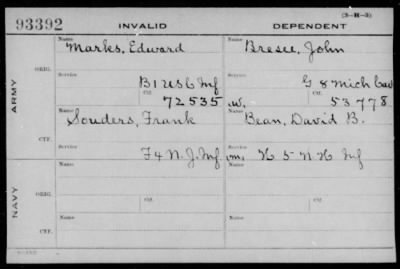 93392 INVALID DEPENDENT (3-H-3)
Name Marks, Edward Name Bresee, John
ORIG.
Service B 1 U S C Inf Service G 8 Mich Cav
Ctf. 72535 w. Ctf. 53778
ARMY
Name Souders, Frank Name Bean, David B.
CTF.
Service F 4 N. J. Inf m. Service H 5 N H Inf
NAVY
Name Name
ORIG.
Service Service
Ctf. Ctf.
Name Name
CTF.
Service Service